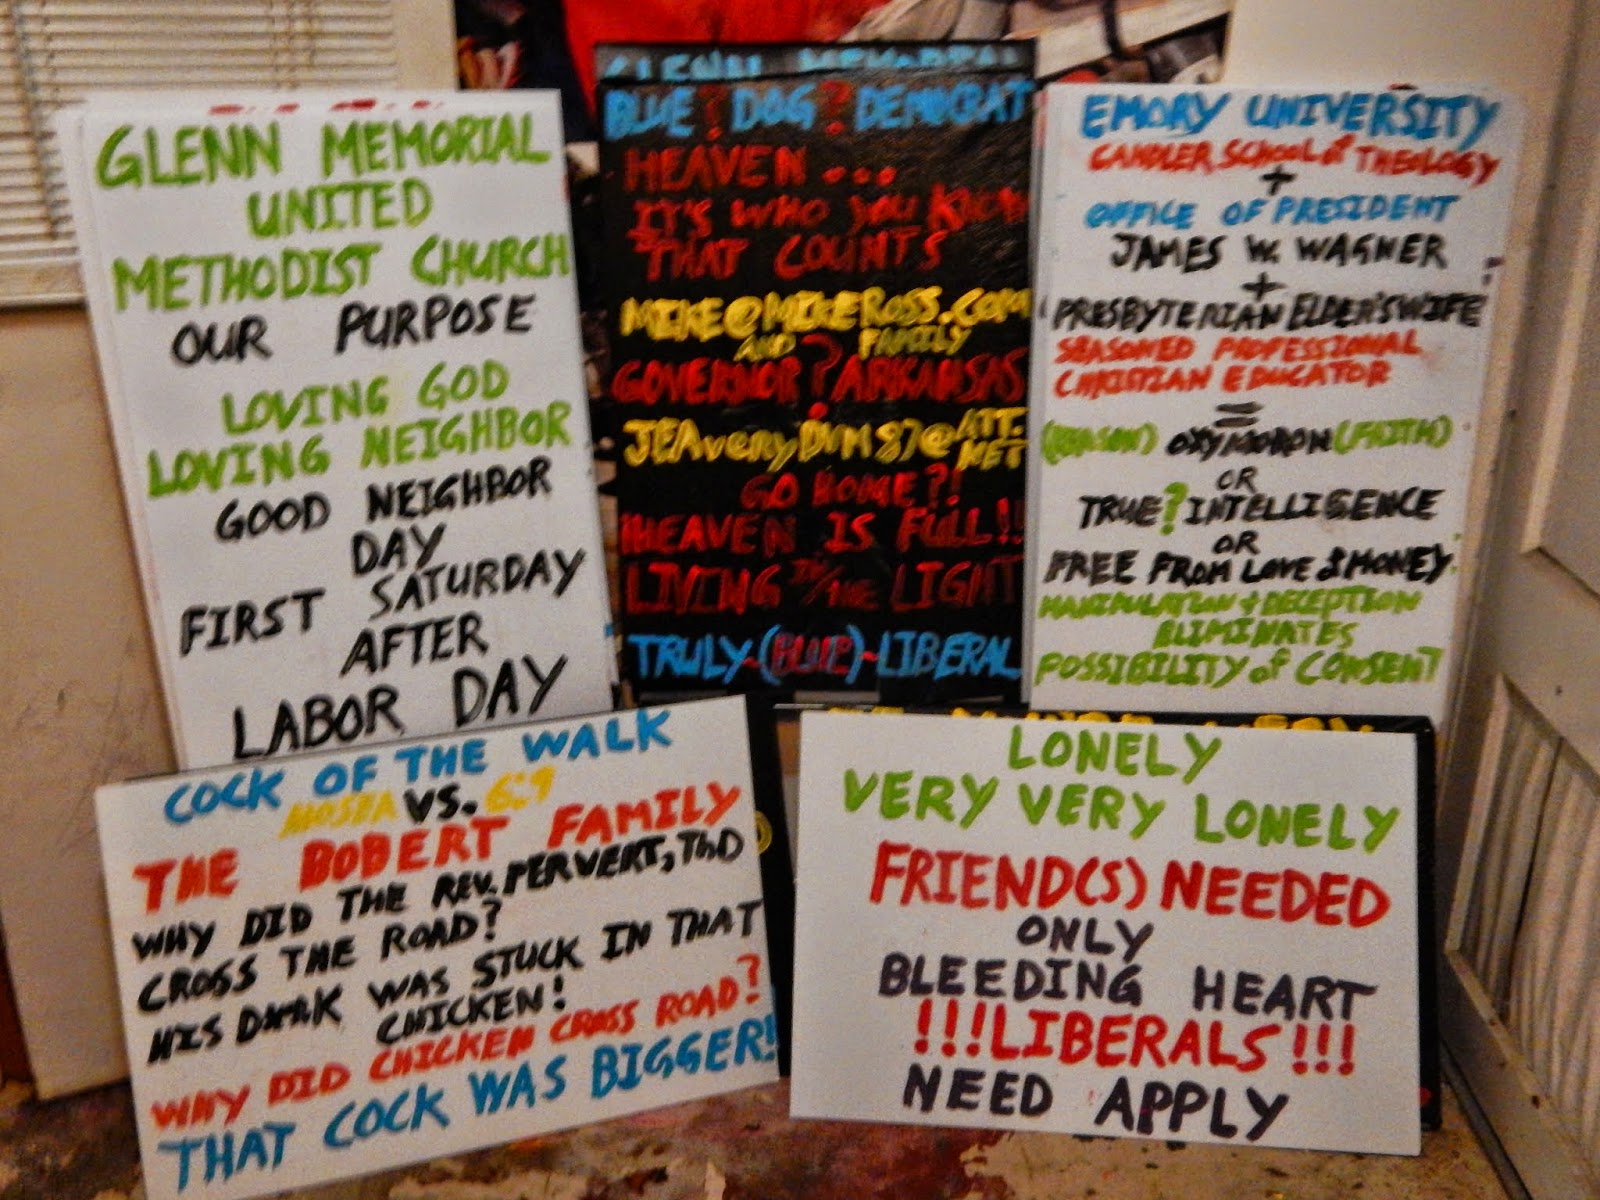 GLENN MEMORIAL
UNITED
METHODIST CHURCH
OUR PURPOSE
LOVING GOD
LOVING NEIGHBOR
GOOD NEIGHBOR
DAY
FIRST SATURDAY
AFTER
LABOR DAY
GLENN MEMORIAL
BLUE? DOG? DEMOCRAT
HEAVEN...
IT'S WHO YOU KNOW
THAT COUNTS
MIKE@MIKEROSS.COM
AND FAMILY
GOVERNOR? ARKANSAS
JEAveryDVM87@ATT.
NET
GO HOME?!
HEAVEN IS FULL!!
LIVING IN/THE LIGHT
TRULY-(BLUE)-LIBERAL
EMORY UNIVERSITY
CANDLER SCHOOL of THEOLOGY
+
OFFICE OF PRESIDENT
JAMES W. WAGNER
+
PRESBYTERIAN ELDER'S WIFE
SEASONED PROFESSIONAL
CHRISTIAN EDUCATOR
=
(REASON) OXYMORON (FAITH)
OR
TRUE? INTELLIGENCE
OR
FREE FROM LOVE & MONEY
MANIPULATION + DECEPTION
ELIMINATES
POSSIBILITY of CONSENT
COCK OF THE WALK
HOSEA VS. 6:9
THE BOBERT FAMILY
WHY DID THE REV. PERVERT, ThD
CROSS THE ROAD?
HIS WAS STUCK IN THAT
CHICKEN!
WHY DID CHICKEN CROSS ROAD?
THAT COCK WAS BIGGER!
LONELY
VERY VERY LONELY
FRIEND(S) NEEDED
ONLY
BLEEDING HEART
!!!LIBERALS!!!
NEED APPLY